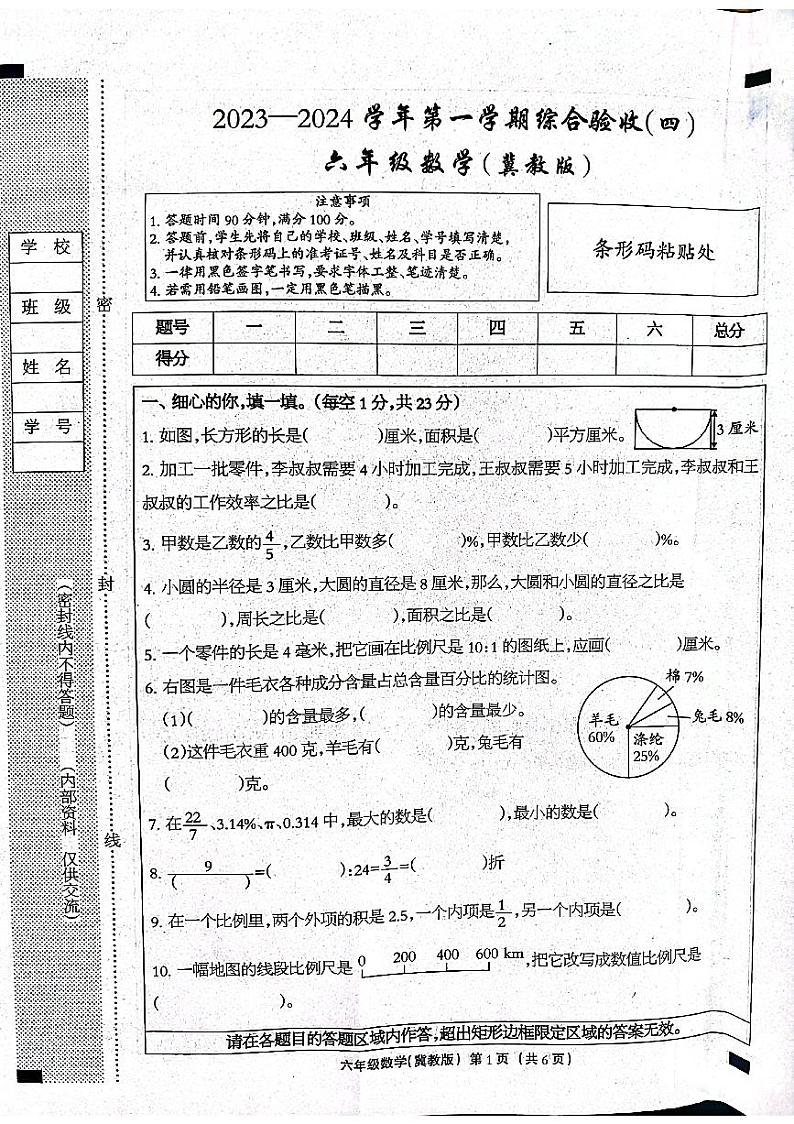 2023—2024 学年第一学期综合验收(四)
六年级数学(冀教版)
注意事项
1. 答题时间 90 分钟,满分 100 分。
2. 答题前,学生先将自己的学校、班级、姓名、学号填写清楚,
并认真核对条形码上的准考证号、姓名及科目是否正确。
3. 一律用黑色签字笔书写,要求字体工整、笔迹清楚。
4. 若需用铅笔画图,一定用黑色笔描黑。
条形码粘贴处
学 校
班 级
姓 名
学 号
密
封
线
(密封线内不得答题)
(内部资料 仅供交流)
题号 一 二 三 四 五 六 总分
得分
一、细心的你,填一填。(每空 1 分,共 23 分)
1. 如图,长方形的长是( )厘米,面积是( )平方厘米。
3 厘米
2. 加工一批零件,李叔叔需要 4 小时加工完成,王叔叔需要 5 小时加工完成,李叔叔和王
叔叔的工作效率之比是( )。
3. 甲数是乙数的 4/5 ,乙数比甲数多( )%,甲数比乙数少( )%。
4. 小圆的半径是 3 厘米,大圆的直径是 8 厘米,那么,大圆和小圆的直径之比是
( ),周长之比是( ),面积之比是( )。
5. 一个零件的长是 4 毫米,把它画在比例尺是 10∶1 的图纸上,应画( )厘米。
6. 右图是一件毛衣各种成分含量占总含量百分比的统计图。
(1)( )的含量最多,( )的含量最少。
(2)这件毛衣重 400 克,羊毛有( )克,兔毛有
( )克。
棉 7%
兔毛 8%
羊毛
60%
涤纶
25%
7. 在 22/7 、3.14%、π、0.314 中,最大的数是( ),最小的数是( )。
8. 9/( ) =( )∶24= 3/4 =( )折
9. 在一个比例里,两个外项的积是 2.5,一个内项是 1/2 ,另一个内项是( )。
10. 一幅地图的线段比例尺是 0 200 400 600 km ,把它改写成数值比例尺是
( )。
请在各题目的答题区域内作答,超出矩形边框限定区域的答案无效。
六年级数学(冀教版) 第 1 页 (共 6 页)